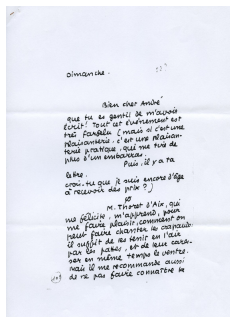 Dimanche.
Bien cher André
que tu es gentil de m'avoir
écrit! Tout cet événement est
très farfelu (mais si c'est une
plaisanterie, c'est une plaisan-
terie pratique, qui me tire de
plus d'un embarras.
Puis, il y a ta
lettre.
crois-tu que je suis encore d'âge
à recevoir des prix?)
M. Thoret d'Aix, qui
me félicite, m'apprend, pour
me faire plaisir, comment on
peut faire chanter les crapauds.
il suffit de les tenir en l'air
par les pattes, et de leur cares-
ser en même temps le ventre.
Mais il me recommande aussi
de ne pas faire connaître le